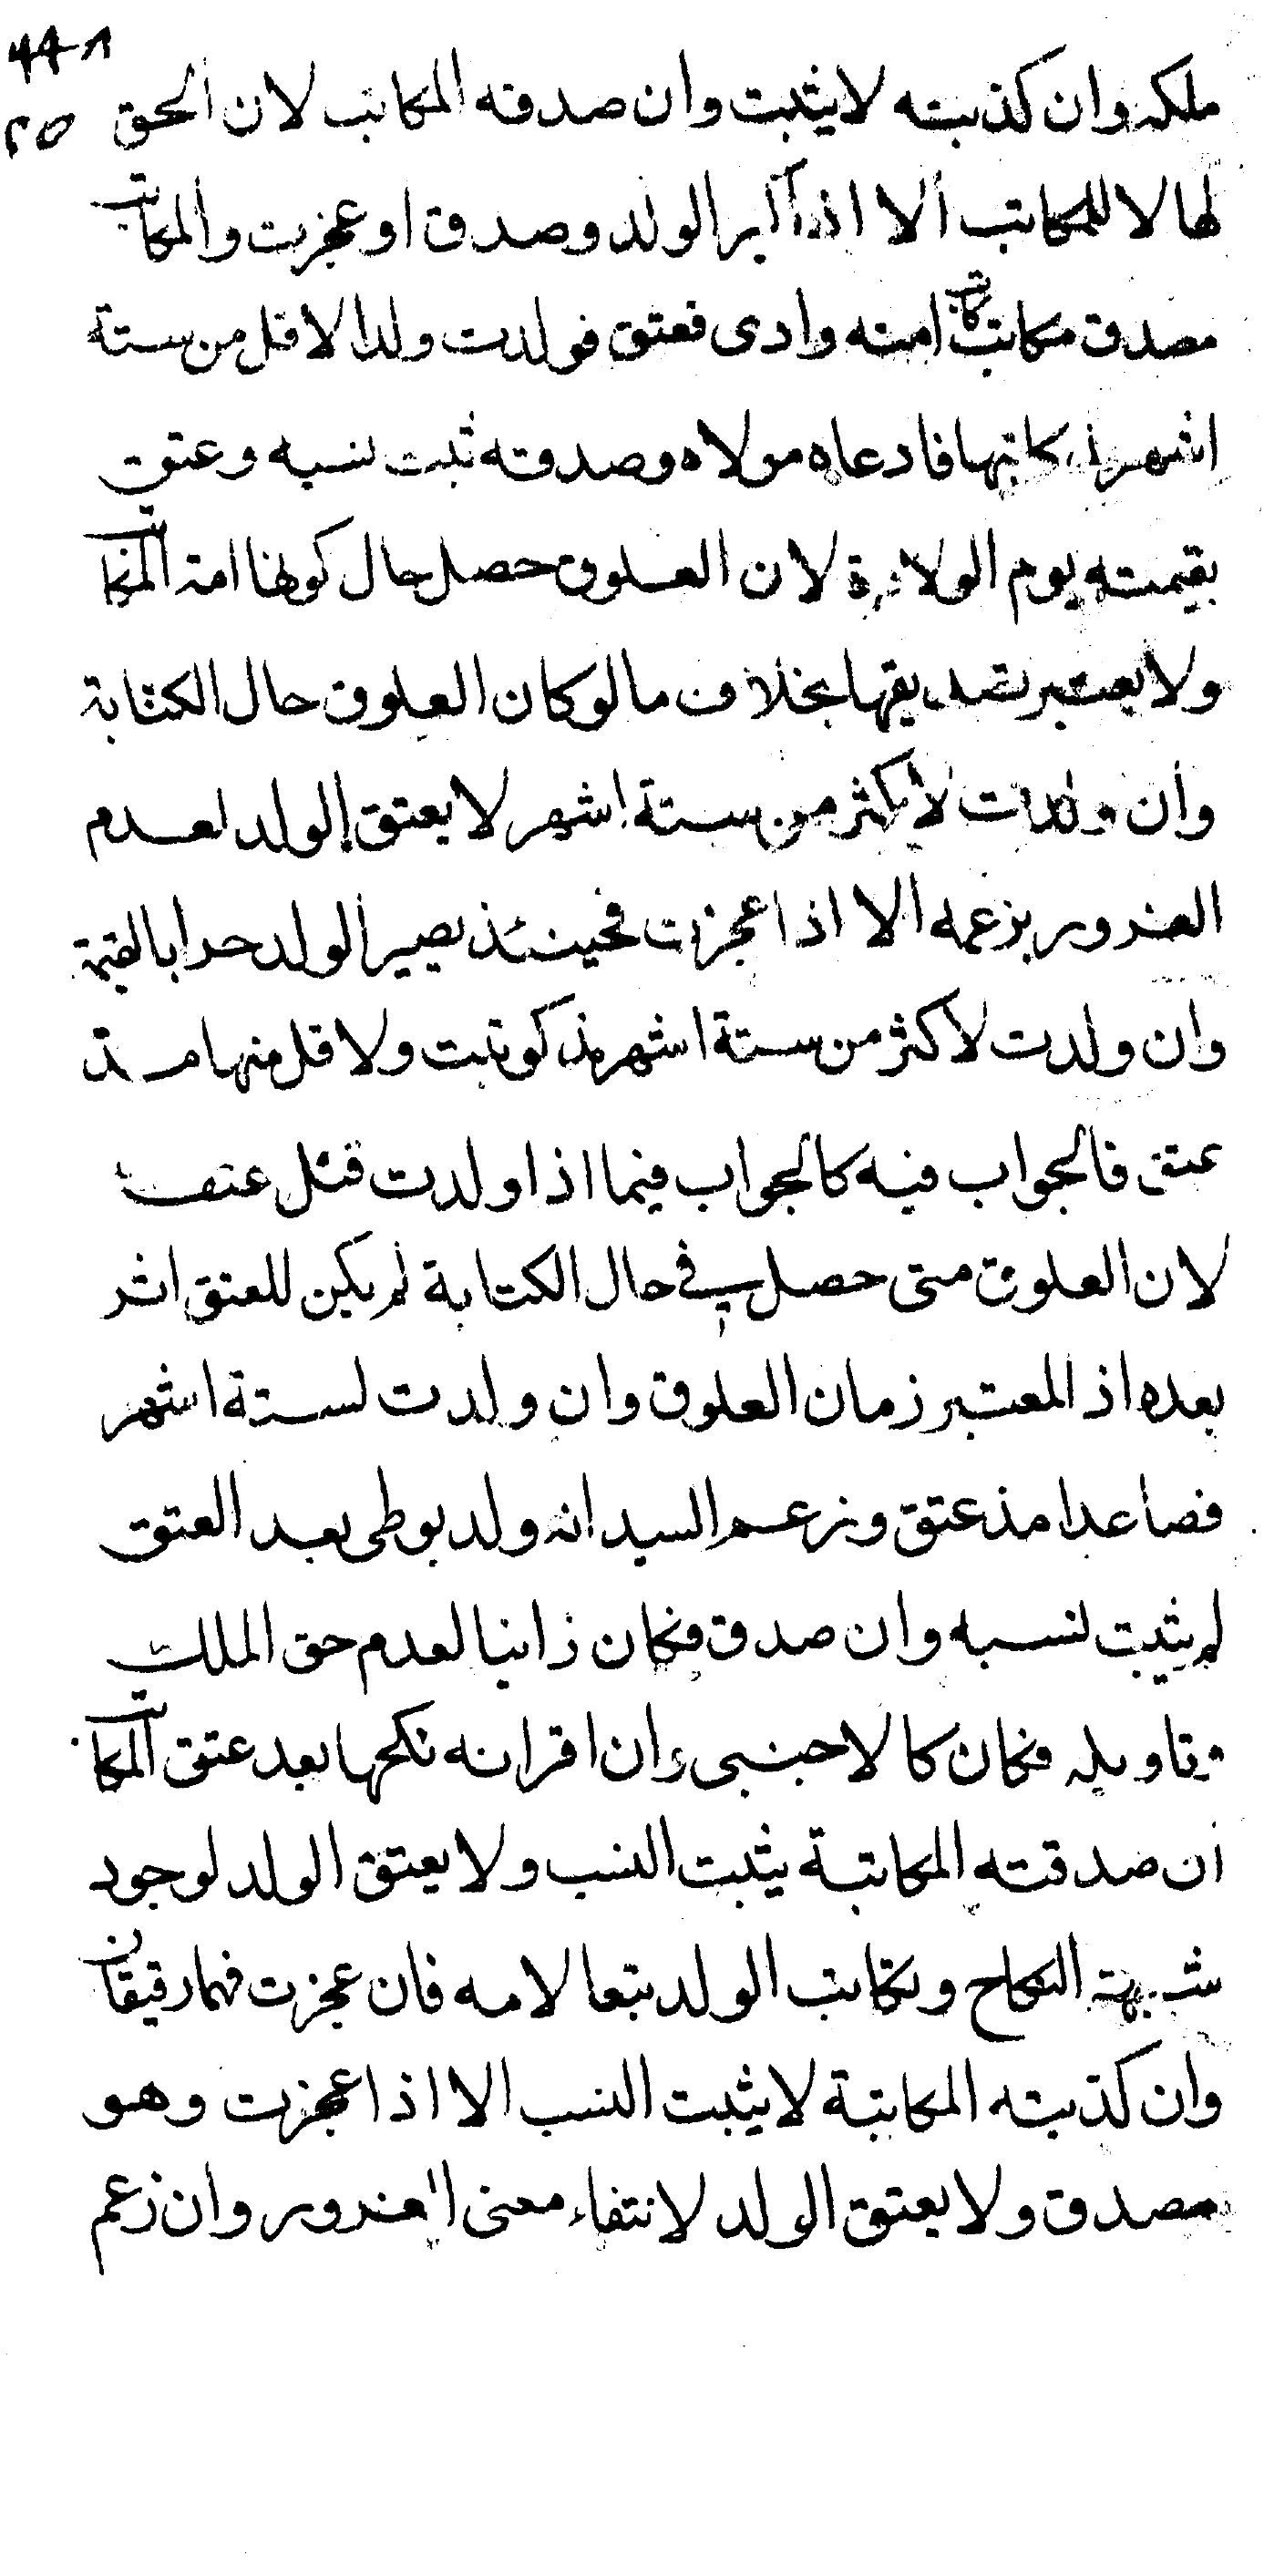 ٢٥
ملكه وان كذبته لا يثبت وان صدقه المكاتب لان الحق
لها لا للمكاتب الا اذا كبر الولد وصدق او عجزت والمكاتب
مصدق مكاتب كاتب امته وادى فعتق فولدت ولدا لاقل من ستة
اشهر مذ كاتبها فادعاه مولاه وصدقته ثبت نسبه وعتق
بقيمته يوم الولادة لان العلوق حصل حال كونها امة المكاتب
ولا يعتبر تصديقها بخلاف ما لو كان العلوق حال الكتابة
وان ولدت لاكثر من ستة اشهر لا يعتق الولد لعدم
الغرور بزعمه الا اذا عجزت فحينئذ يصير الولد حرا بالقيمة
وان ولدت لاكثر من ستة اشهر مذ كوتبت ولاقل منها مذ
عتق فالجواب فيه كالجواب فيما اذا ولدت قبل عتقه
لان العلوق متى حصل في حال الكتابة لم يكن للعتق اثر
بعده اذ المعتبر زمان العلوق وان ولدت لستة اشهر
فصاعدا مذ عتق وزعم السيد انه ولد بوطى بعد العتق
لم يثبت نسبه وان صدق فكان زانيا لعدم حق الملك
وتاويله فكان كالاجنبى وان اقر انه نكحها بعد عتق المكاتب
ان صدقته المكاتبة يثبت النسب ولا يعتق الولد لوجود
شبهة النكاح ويكاتب الولد تبعا لامه فان عجزت فهما رقيقان
وان كذبته المكاتبة لا يثبت النسب الا اذا عجزت وهو
مصدق ولا يعتق الولد لانتفاء معنى الغرور وان زعم